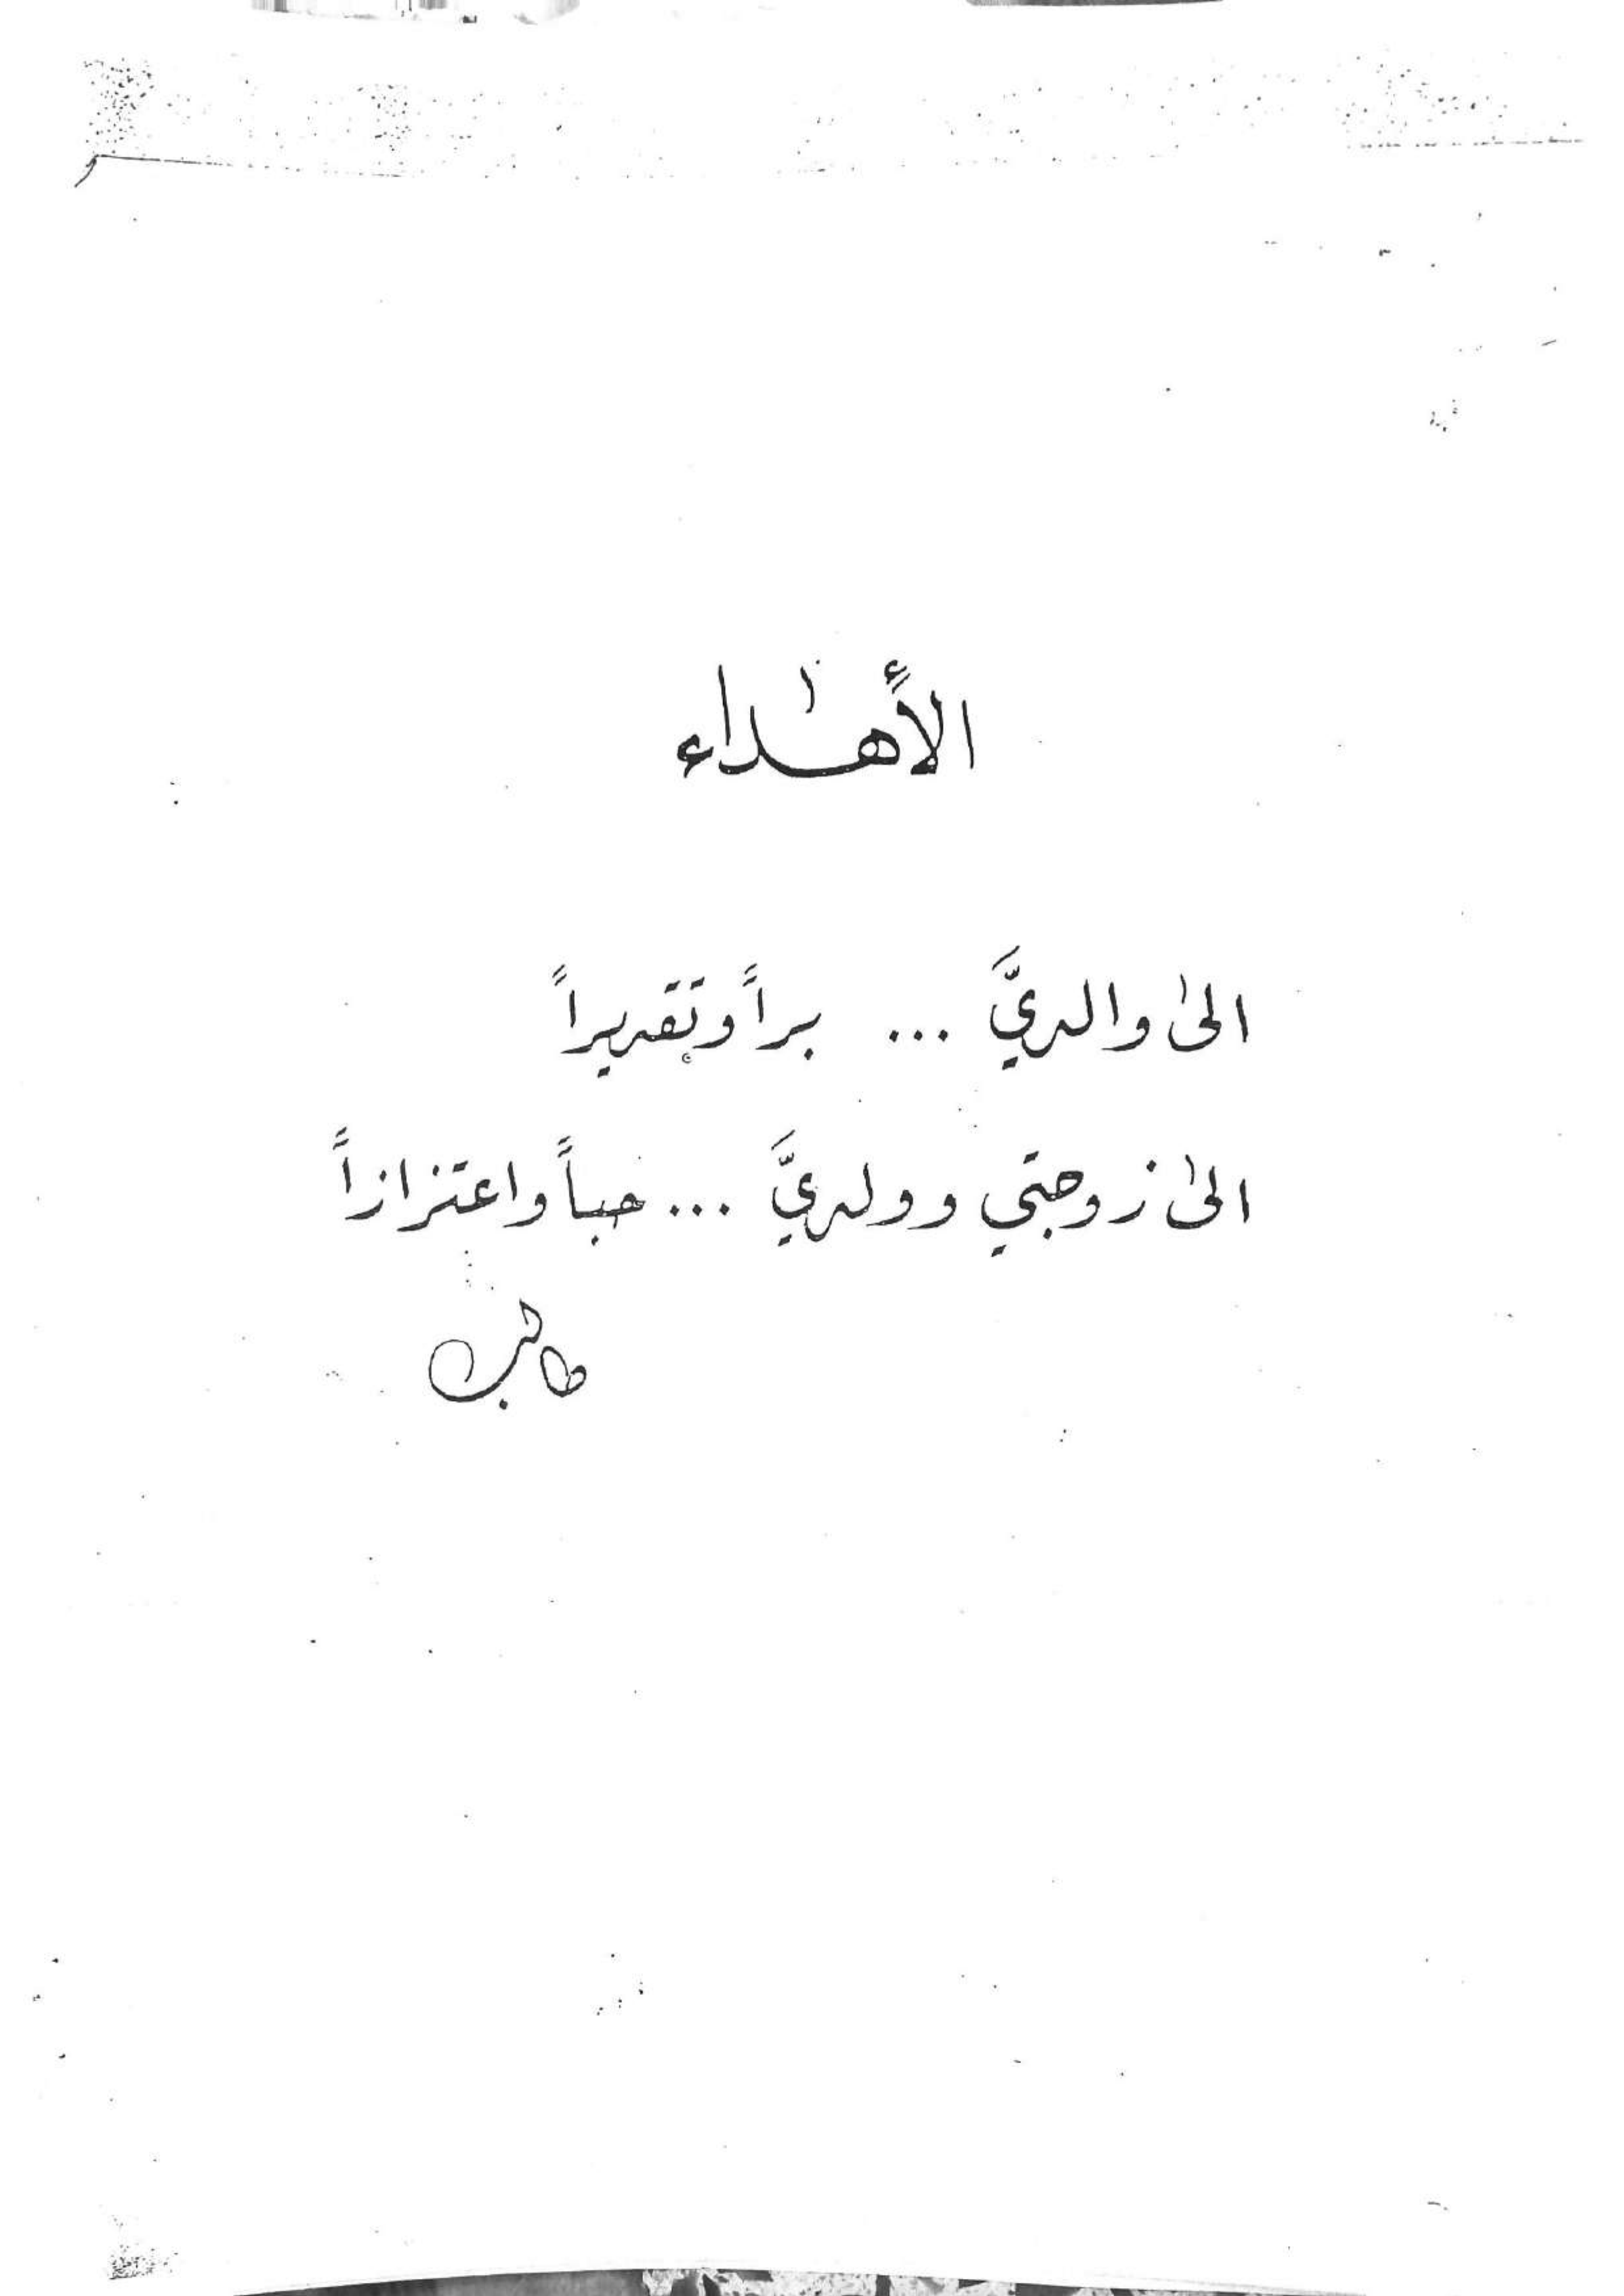 الأهداء
الىٰ والديَّ ... براً وتقديراً
الىٰ زوجتي وولديَّ ... حباً واعتزازاً
طالب